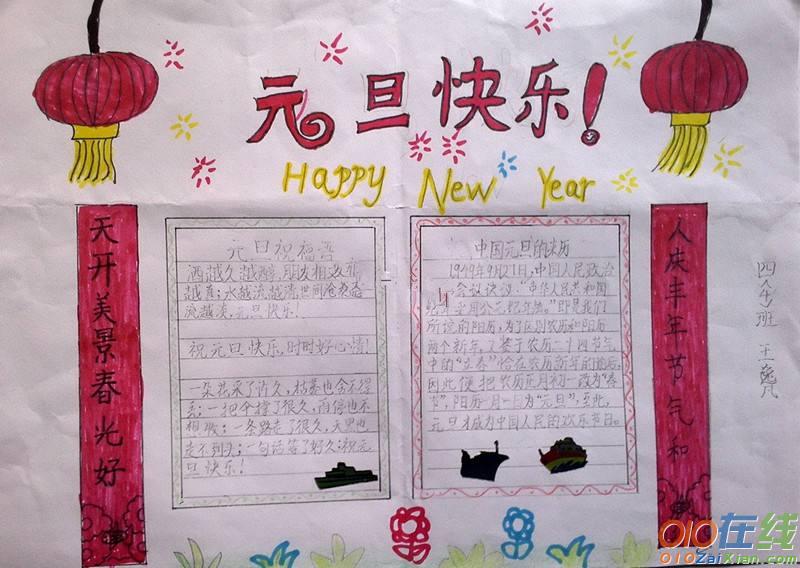 元旦快乐!
Happy New Year
天开美景春光好
元旦祝福语
酒越久越醇,朋友相交越久
越真;水越流越清,世间沧桑越
流越淡。元旦快乐!
祝元旦快乐,时时好心情!
一朵花采了许久,枯萎也舍不得
丢;一把伞撑了很久,雨停也不
想收;一条路走了很久,天黑也
走不到头;一句话等了好久:祝元
旦快乐!
中国元旦的来历
1949年9月27日,中国人民政治
会议决议:“中华人民共和国
纪年采用公元纪年法。”即是我们
所说的阳历,为了区别农历和阳历
两个新年,又鉴于农历二十四节气
中的“立春”恰在农历新年的前后,
因此便把农历正月初一改为“春
节”,阳历一月一日为“元旦”,至此,
元旦才成为中国人民的欢乐节日。
人庆丰年节气和
班 王
010在线
010ZaiXian.com